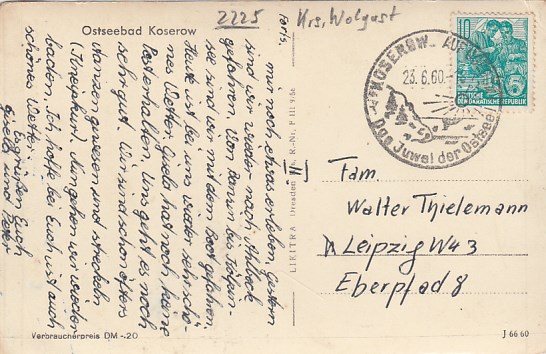 Ostseebad Koserow
2225
Krs. Wolgast
KOSEROW
23.6.60.
Das Juwel der Ostsee
10
DEUTSCHE
DEMOKRATISCHE REPUBLIK
mir noch etwas erleben, gestern
sind wir wieder nach Ahlbeck
gefahren. Von Bansin bis
see sind wir mit dem Boot gefahren.
Heute ist bei uns wieder sehr schö-
nes Wetter. Gisela hat noch keine
Post erhalten. Uns geht es noch
sehr gut. Wir sind schon öfters
tanzen gewesen und
Jungehen wir wieder
baden. Ich hoffe bei Euch ist auch
schönes Wetter.
Es grüßen Euch
Gisela und Peter
LIKITRA Dresden
Fam.
Walter Thielemann
Leipzig W43
Eberpfad 8
Verbraucherpreis DM -.20
J 66 60